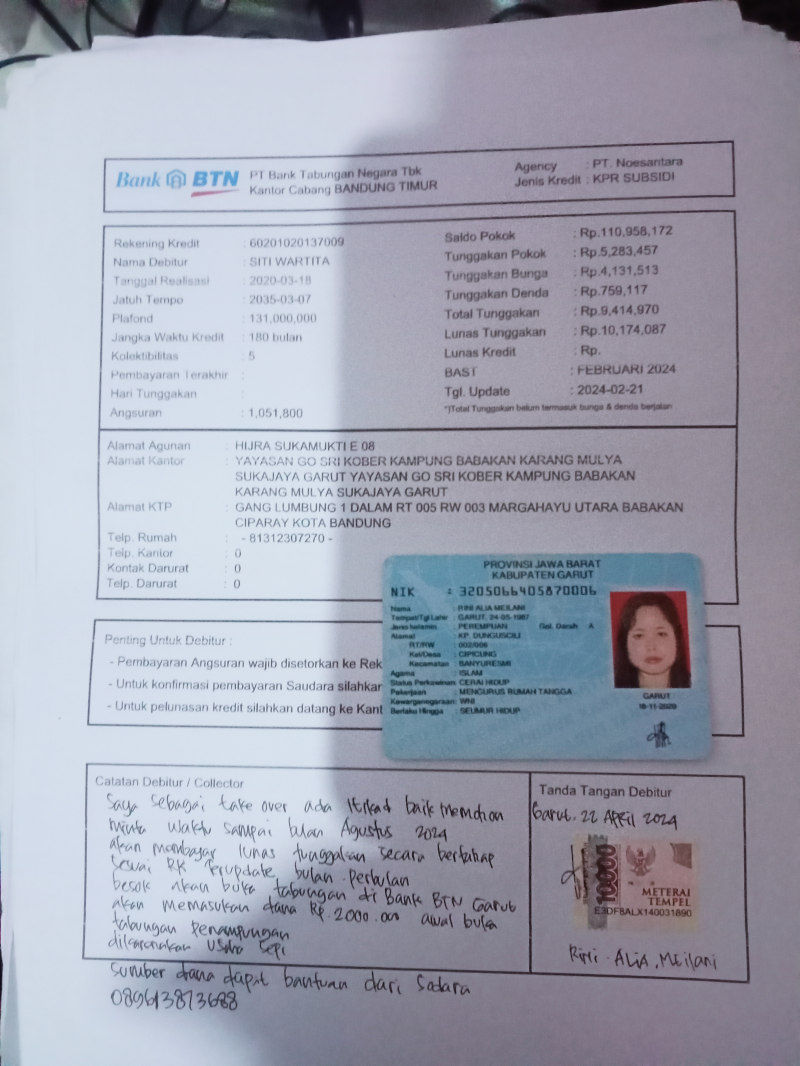 Bank BTN
PT Bank Tabungan Negara Tbk
Kantor Cabang BANDUNG TIMUR
Agency : PT. Noesantara
Jenis Kredit : KPR SUBSIDI
Rekening Kredit : 60201020137009
Nama Debitur : SITI WARTITA
Tanggal Realisasi : 2020-03-18
Jatuh Tempo : 2035-03-07
Plafond : 131,000,000
Jangka Waktu Kredit : 180 bulan
Kolektibilitas : 5
Pembayaran Terakhir :
Hari Tunggakan :
Angsuran : 1,051,800
Saldo Pokok : Rp.110,958,172
Tunggakan Pokok : Rp.5,283,457
Tunggakan Bunga : Rp.4,131,513
Tunggakan Denda : Rp.759,117
Total Tunggakan : Rp.9,414,970
Lunas Tunggakan : Rp.10,174,087
Lunas Kredit : Rp.
BAST : FEBRUARI 2024
Tgl. Update : 2024-02-21
*)Total Tunggakan belum termasuk bunga & denda berjalan
Alamat Agunan : HIJRA SUKAMUKTI E 08
Alamat Kantor : YAYASAN GO SRI KOBER KAMPUNG BABAKAN KARANG MULYA
SUKAJAYA GARUT YAYASAN GO SRI KOBER KAMPUNG BABAKAN
KARANG MULYA SUKAJAYA GARUT
Alamat KTP : GANG LUMBUNG 1 DALAM RT 005 RW 003 MARGAHAYU UTARA BABAKAN
CIPARAY KOTA BANDUNG
Telp. Rumah : - 81312307270 -
Telp. Kantor : 0
Kontak Darurat : 0
Telp. Darurat : 0
PROVINSI JAWA BARAT
KABUPATEN GARUT
NIK : 3205066405870006
Nama : RINI ALIA MEILANI
Tempat/Tgl Lahir : GARUT, 24-05-1987
Jenis kelamin : PEREMPUAN Gol. Darah A
Alamat : KP. DUNGUSCILI
RT/RW : 002/006
Kel/Desa : CIPICUNG
Kecamatan : BANYURESMI
Agama : ISLAM
Status Perkawinan: CERAI HIDUP
Pekerjaan : MENGURUS RUMAH TANGGA
Kewarganegaraan: WNI
Berlaku Hingga : SEUMUR HIDUP
GARUT
18-11-2020
Penting Untuk Debitur :
- Pembayaran Angsuran wajib disetorkan ke Rek
- Untuk konfirmasi pembayaran Saudara silahkan
- Untuk pelunasan kredit silahkan datang ke Kant
Catatan Debitur / Collector
Saya sebagai take over ada itikat baik memohon
minta waktu sampai bulan Agustus 2024
akan membayar lunas tunggakan secara bertahap
sesuai RK terupdate bulan perbulan
besok akan buka tabungan di Bank BTN Garut
akan memasukan dana Rp. 2000.000 awal buka
tabungan penampungan
dikarenakan usaha sepi
sumber dana dapat bantuan dari Sodara
089613873688
Tanda Tangan Debitur
Garut, 22 April 2024
10000
METERAI
TEMPEL
E3DF8ALX140031890
Rini . Alia . Meilani